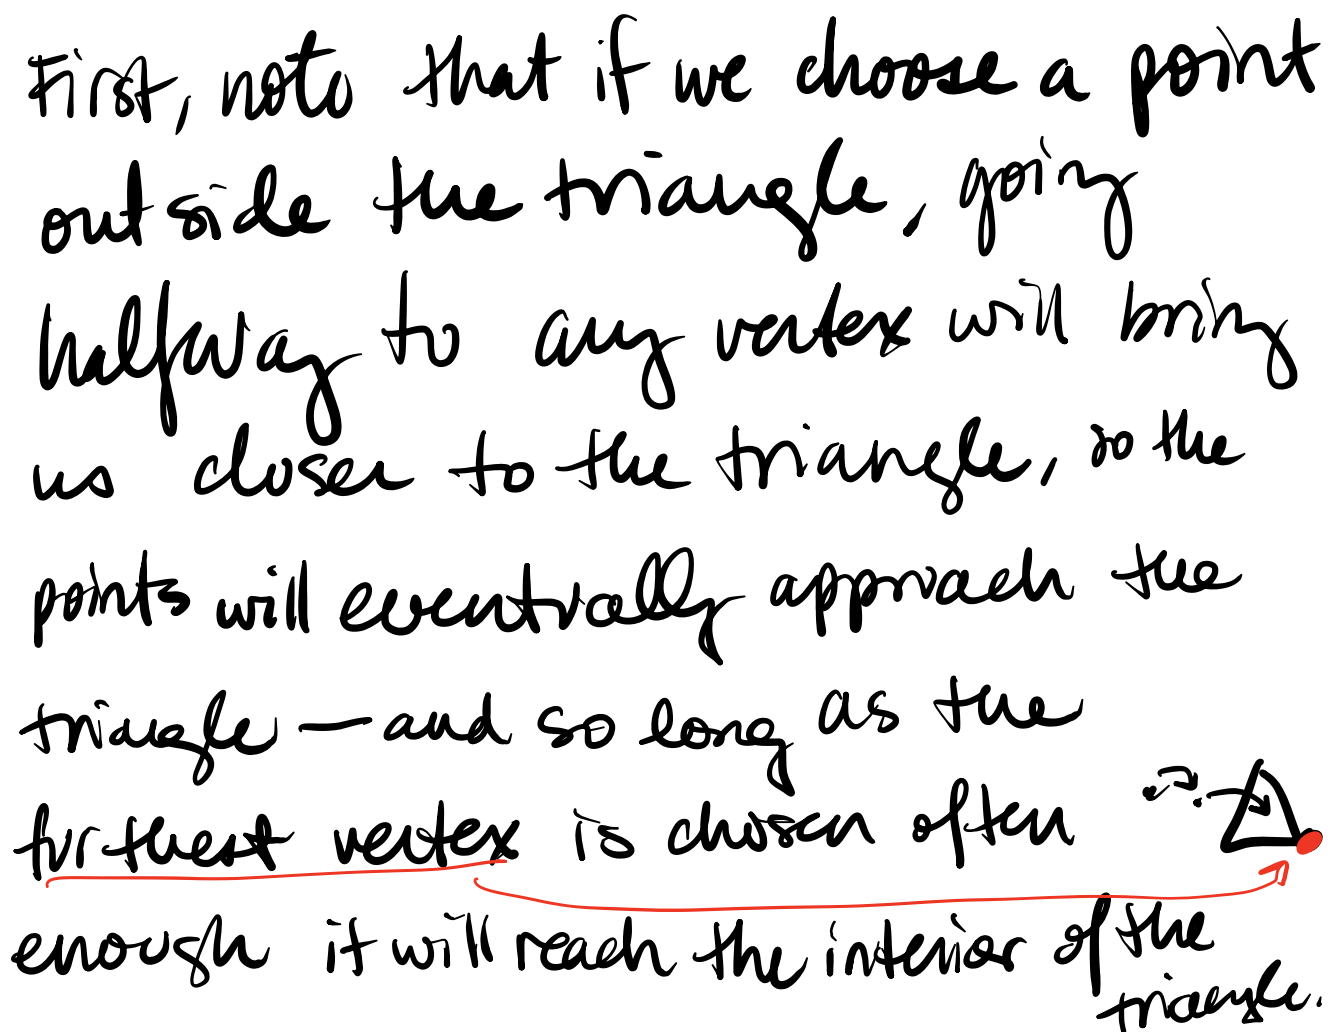 First, note that if we choose a point
outside the triangle, going
halfway to any vertex will bring
us closer to the triangle, so the
points will eventually approach the
triangle — and so long as the
furthest vertex is chosen often
enough it will reach the interior of the
triangle.